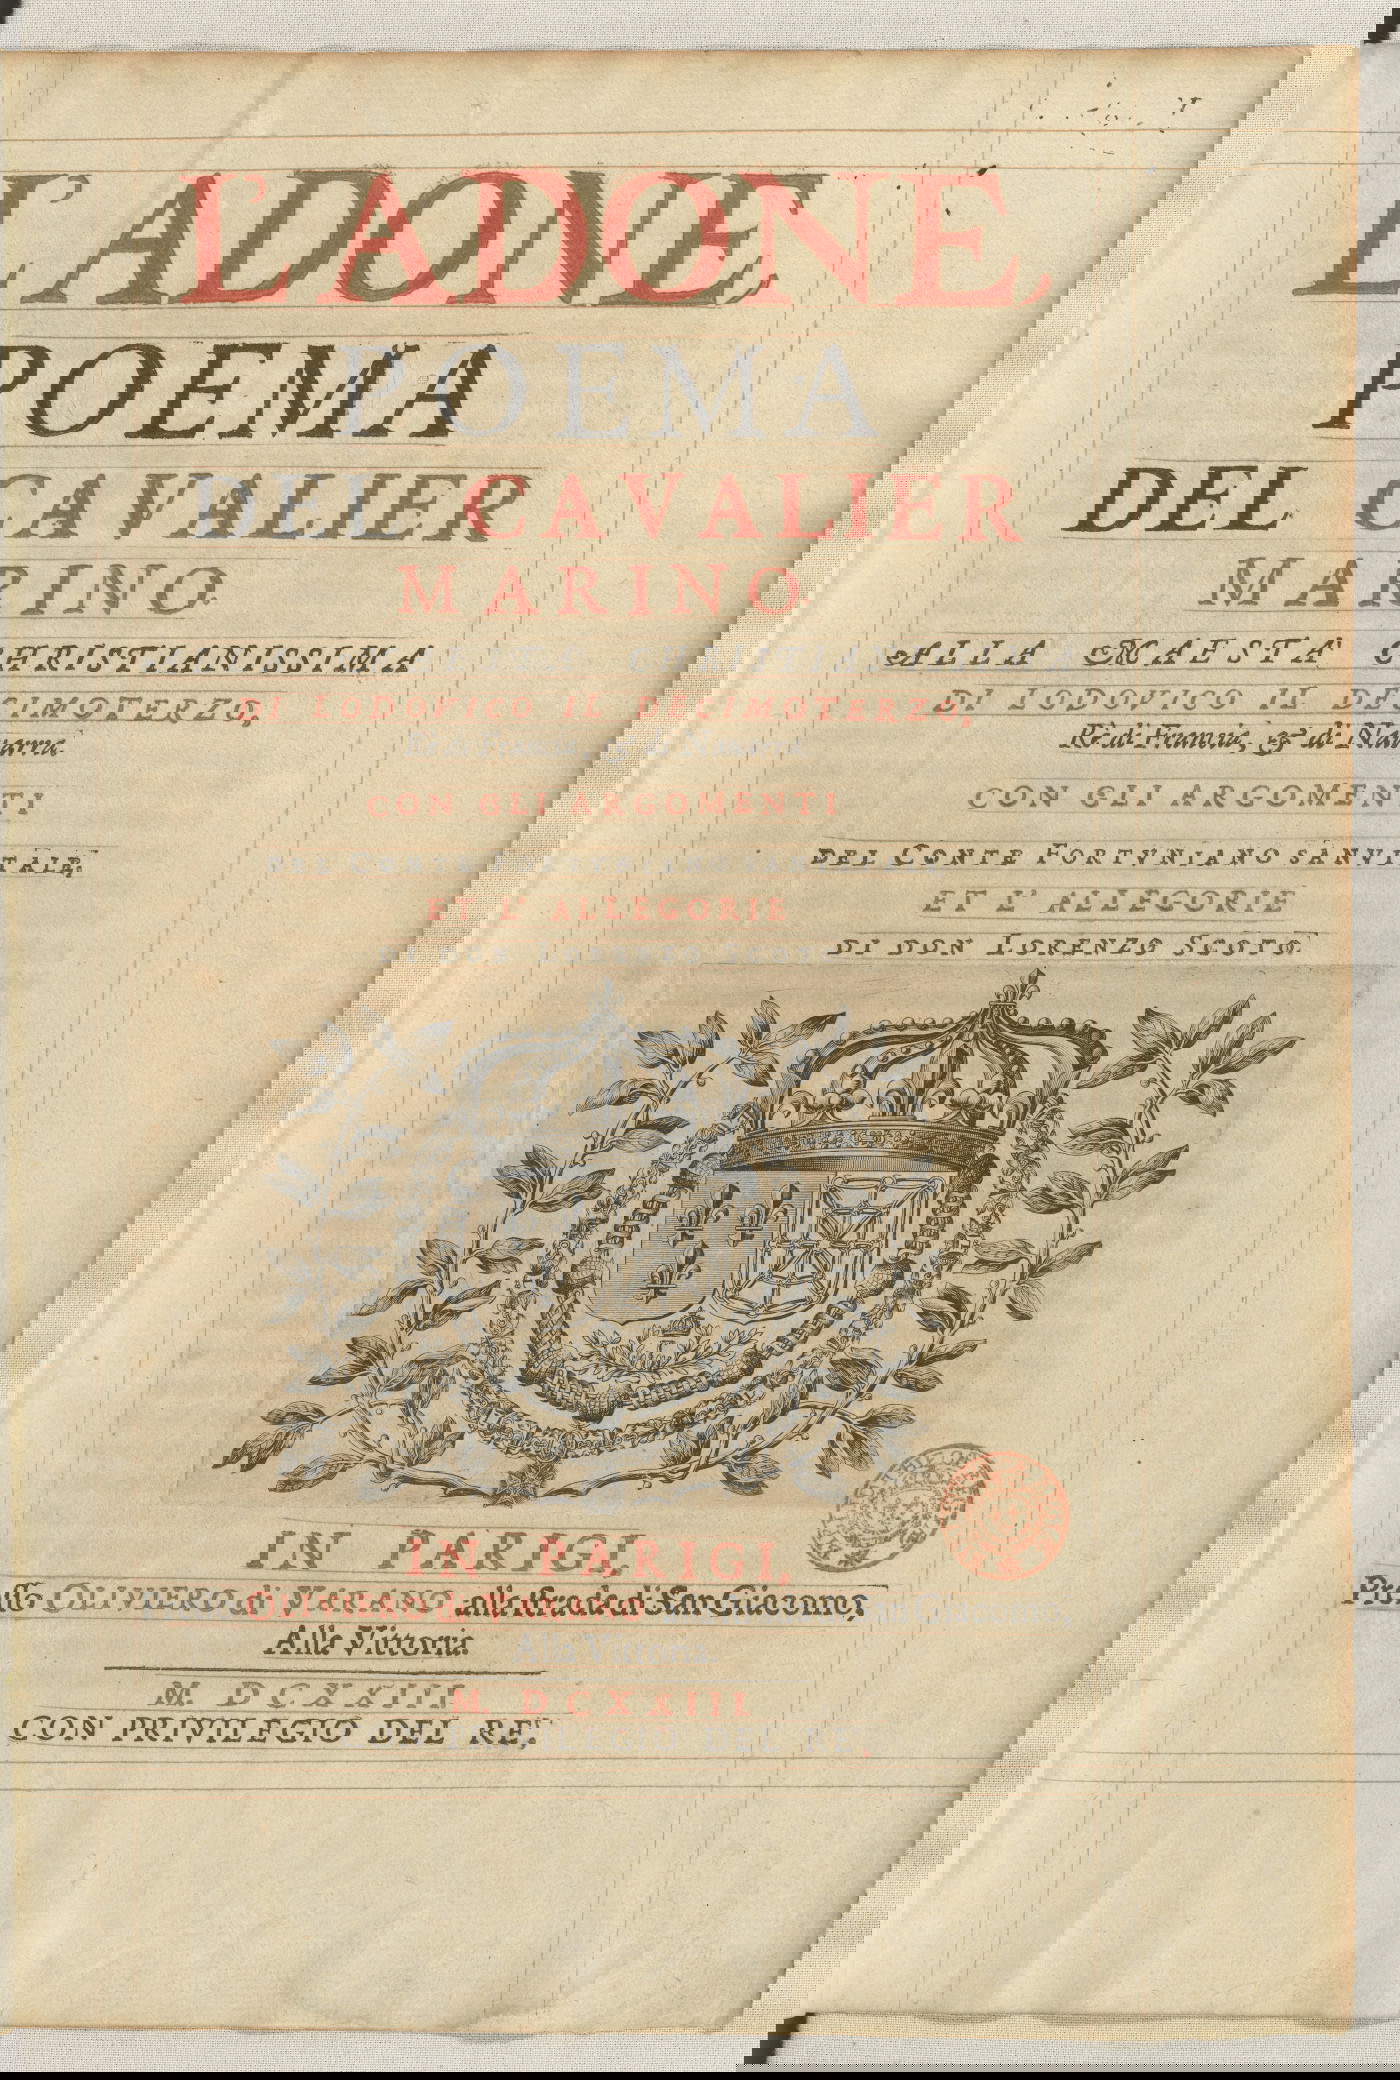 L'ADONE,
POEMA
DEL CAVALIER
MARINO.
ALLA MAESTA' CHRISTIANISSIMA
DI LODOVICO IL DECIMOTERZO,
Rè di Francia, & di Nauarra.
CON GLI ARGOMENTI
DEL CONTE FORTVNIANO SANVITALE,
ET L' ALLEGORIE
DI DON LORENZO SCOTO.
IN PARIGI,
Presso OLIVIERO di VARANO alla strada di San Giacomo,
Alla Vittoria.
M. DCXXIII.
CON PRIVILEGIO DEL RE,